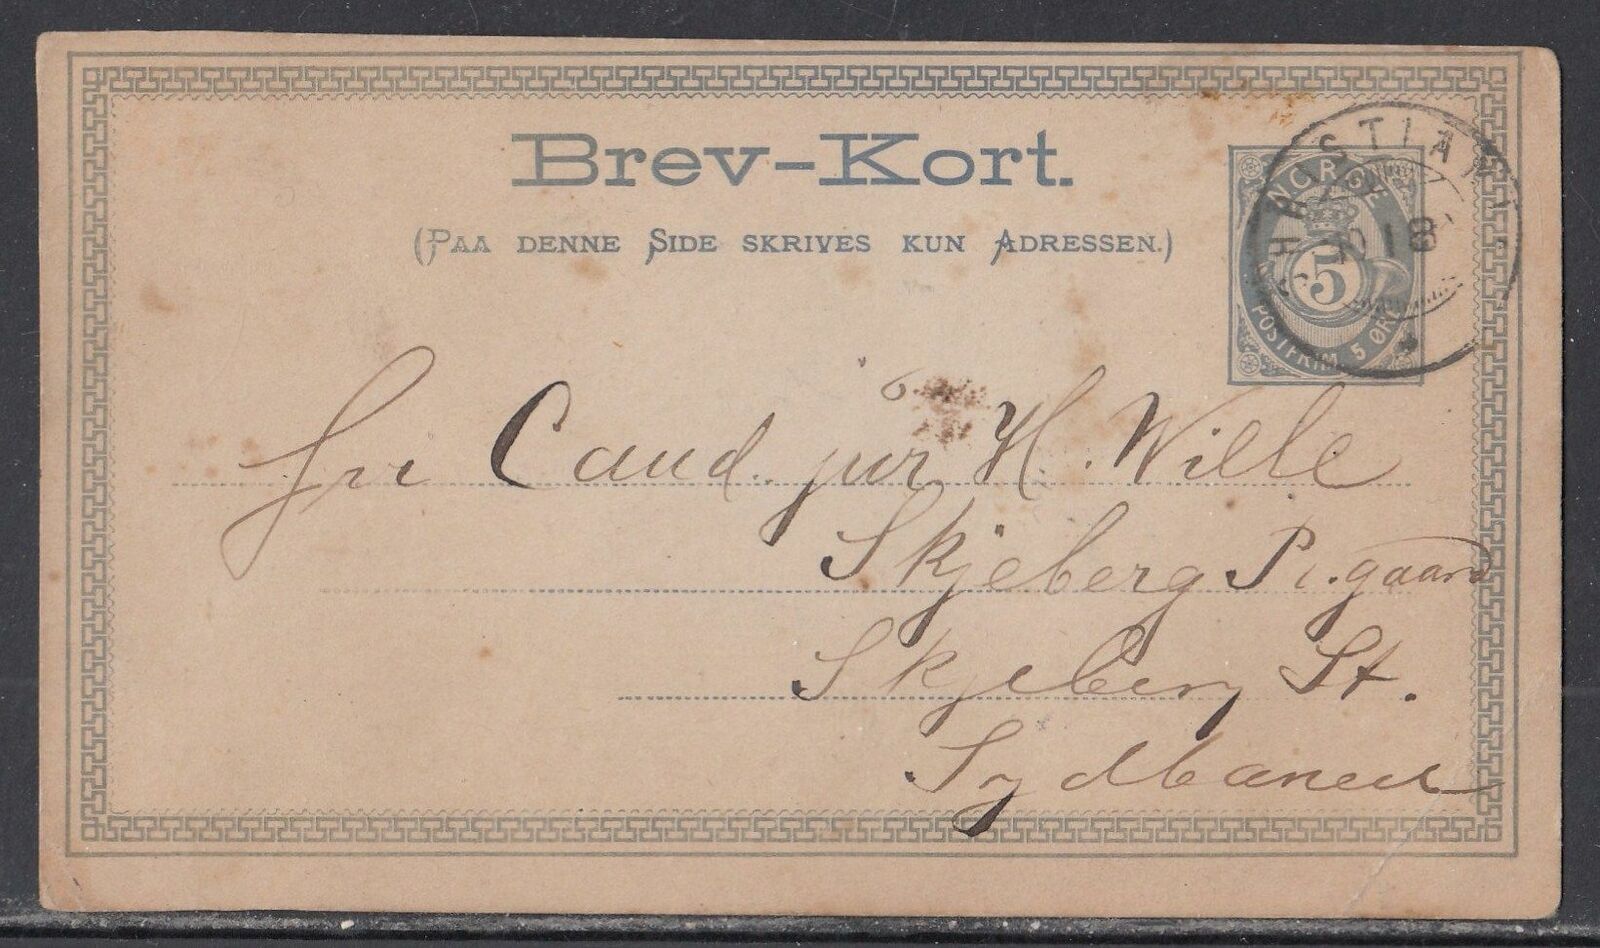 Brev-Kort.
(PAA DENNE SIDE SKRIVES KUN ADRESSEN.)
NORGE
5
POSTFRIM. 5 ØRE
KRISTIANIA
10 1 8
Cand. jur H. Wille
Skjeberg Pr.gaard
Skjeberg St.
Sydbanen